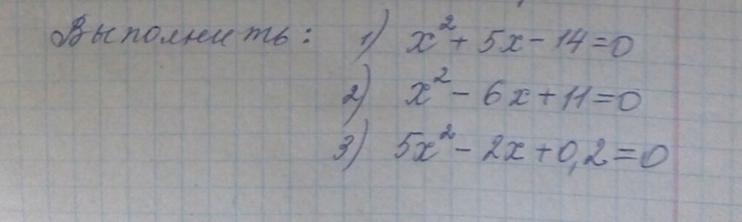 Выполнить: 1) x² + 5x - 14 = 0
2) x² - 6x + 11 = 0
3) 5x² - 2x + 0,2 = 0